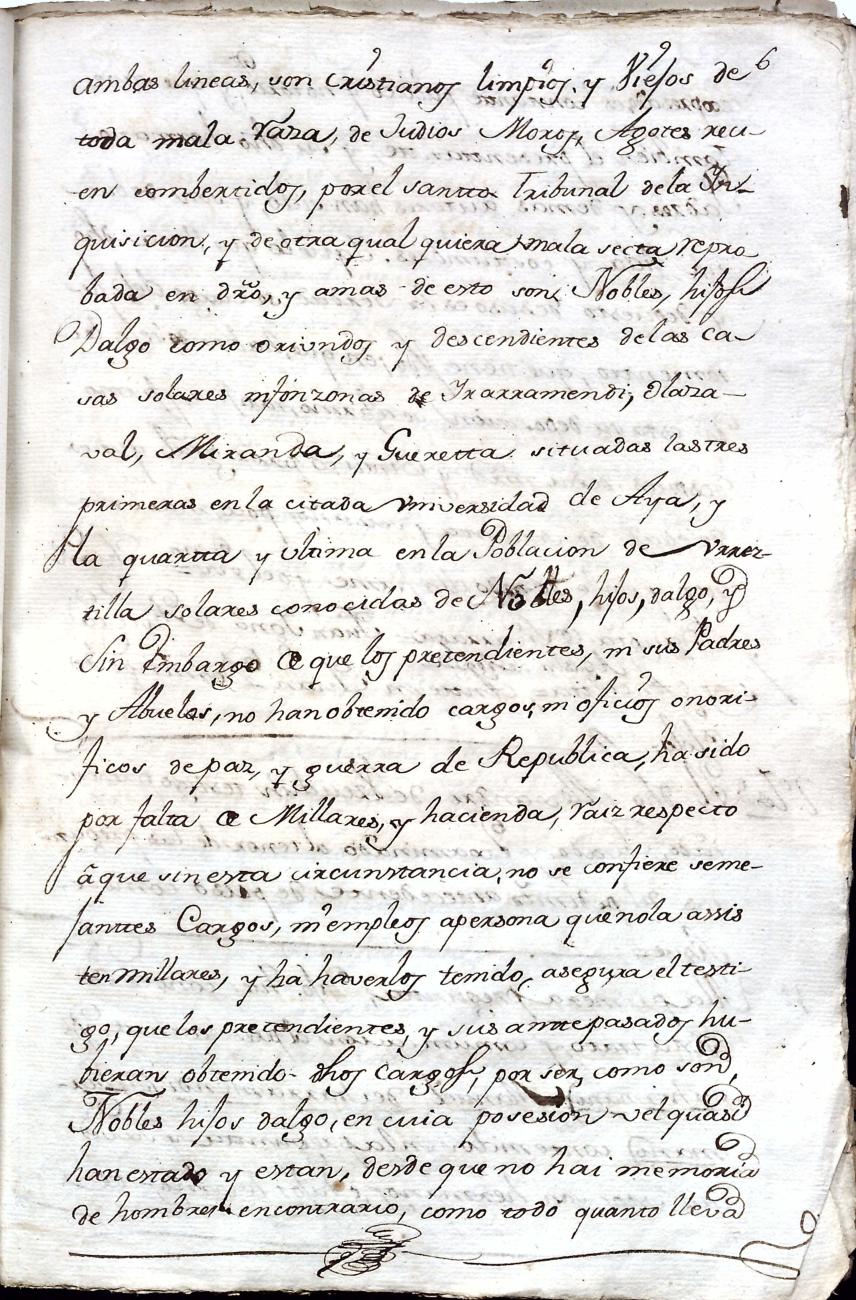 6
ambas lineas, son cristianos limpios, y Viejos de
toda mala raza, de Judios Moros, Agotes reci-
en combertidos, por el santto Tribunal de la Yn-
quisicion, y de otra qual quiera mala secta repro
bada en dro, y amas de esto son Nobles, hijos
Dalgo como oriundos y descendientes de las ca-
sas solares infonzonas de Yrarramendi, Olaza-
val, Miranda, y Gueretta situadas las tres
primeras en la citada vniversidad de Aya, y
la quartta y vltima en la Poblacion de Vrrez-
tilla solares conocidas de Nobles, hijos, dalgo, y
Sin Embargo de que los pretendientes, ni sus Padres
y Abuelos, no han obtenido cargos, ni oficios onori-
ficos de paz, y guerra de Republica, ha sido
por falta de Millares, y hacienda, raiz respecto
à que sin esta circunstancia, no se confiere seme-
janttes Cargos, ni empleos apersona que no la assis
ten millares, y ha haverlos tenido, asegura el testi-
go, que los pretendientes, y sus antepasados hu-
bieran obtenido dhos cargos, por ser, como son,
Nobles hijos dalgo, en cuia posesion vel quasi
han estado y estan, desde que no hai memoria
de hombres en contrario, como todo quanto lleva